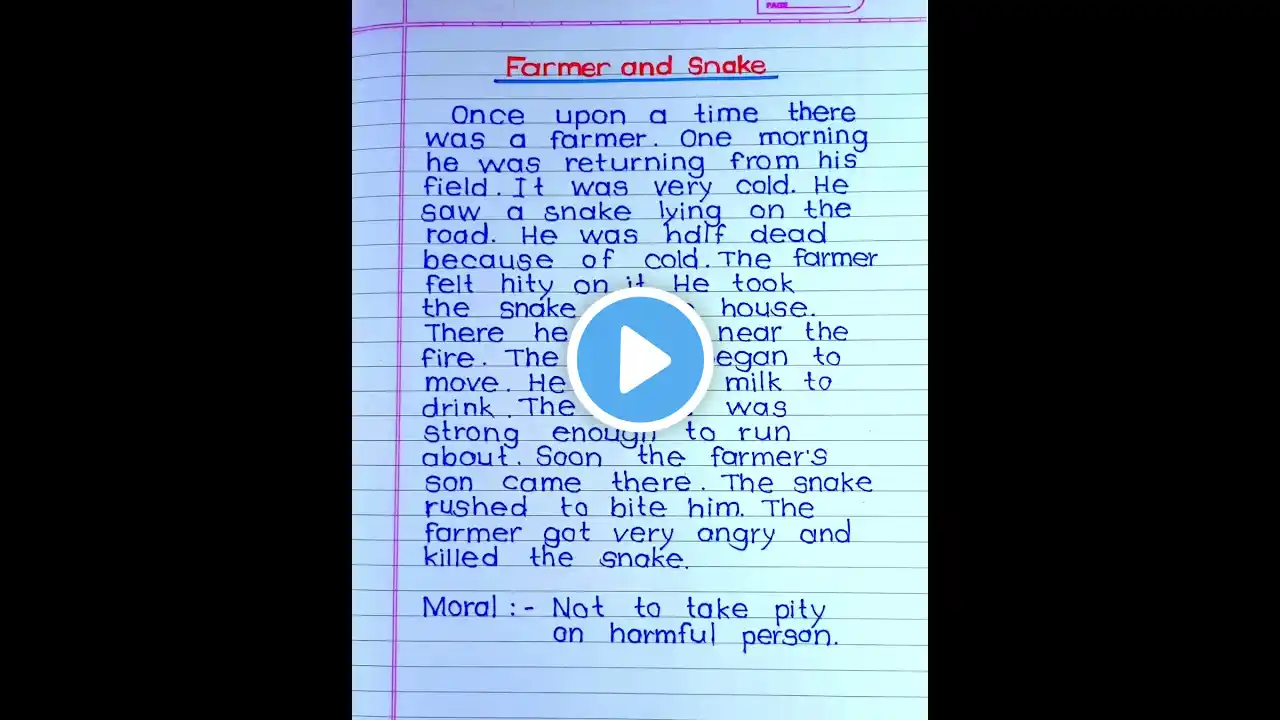 PAGE
Farmer and Snake
Once upon a time there
was a farmer. One morning
he was returning from his
field. It was very cold. He
saw a snake lying on the
road. He was half dead
because of cold. The farmer
felt hity on it. He took
the snake house.
There he near the
fire. The egan to
move. He milk to
drink. The was
strong enough to run
about. Soon the farmer's
son came there. The snake
rushed to bite him. The
farmer got very angry and
killed the snake.
Moral :- Not to take pity
on harmful person.